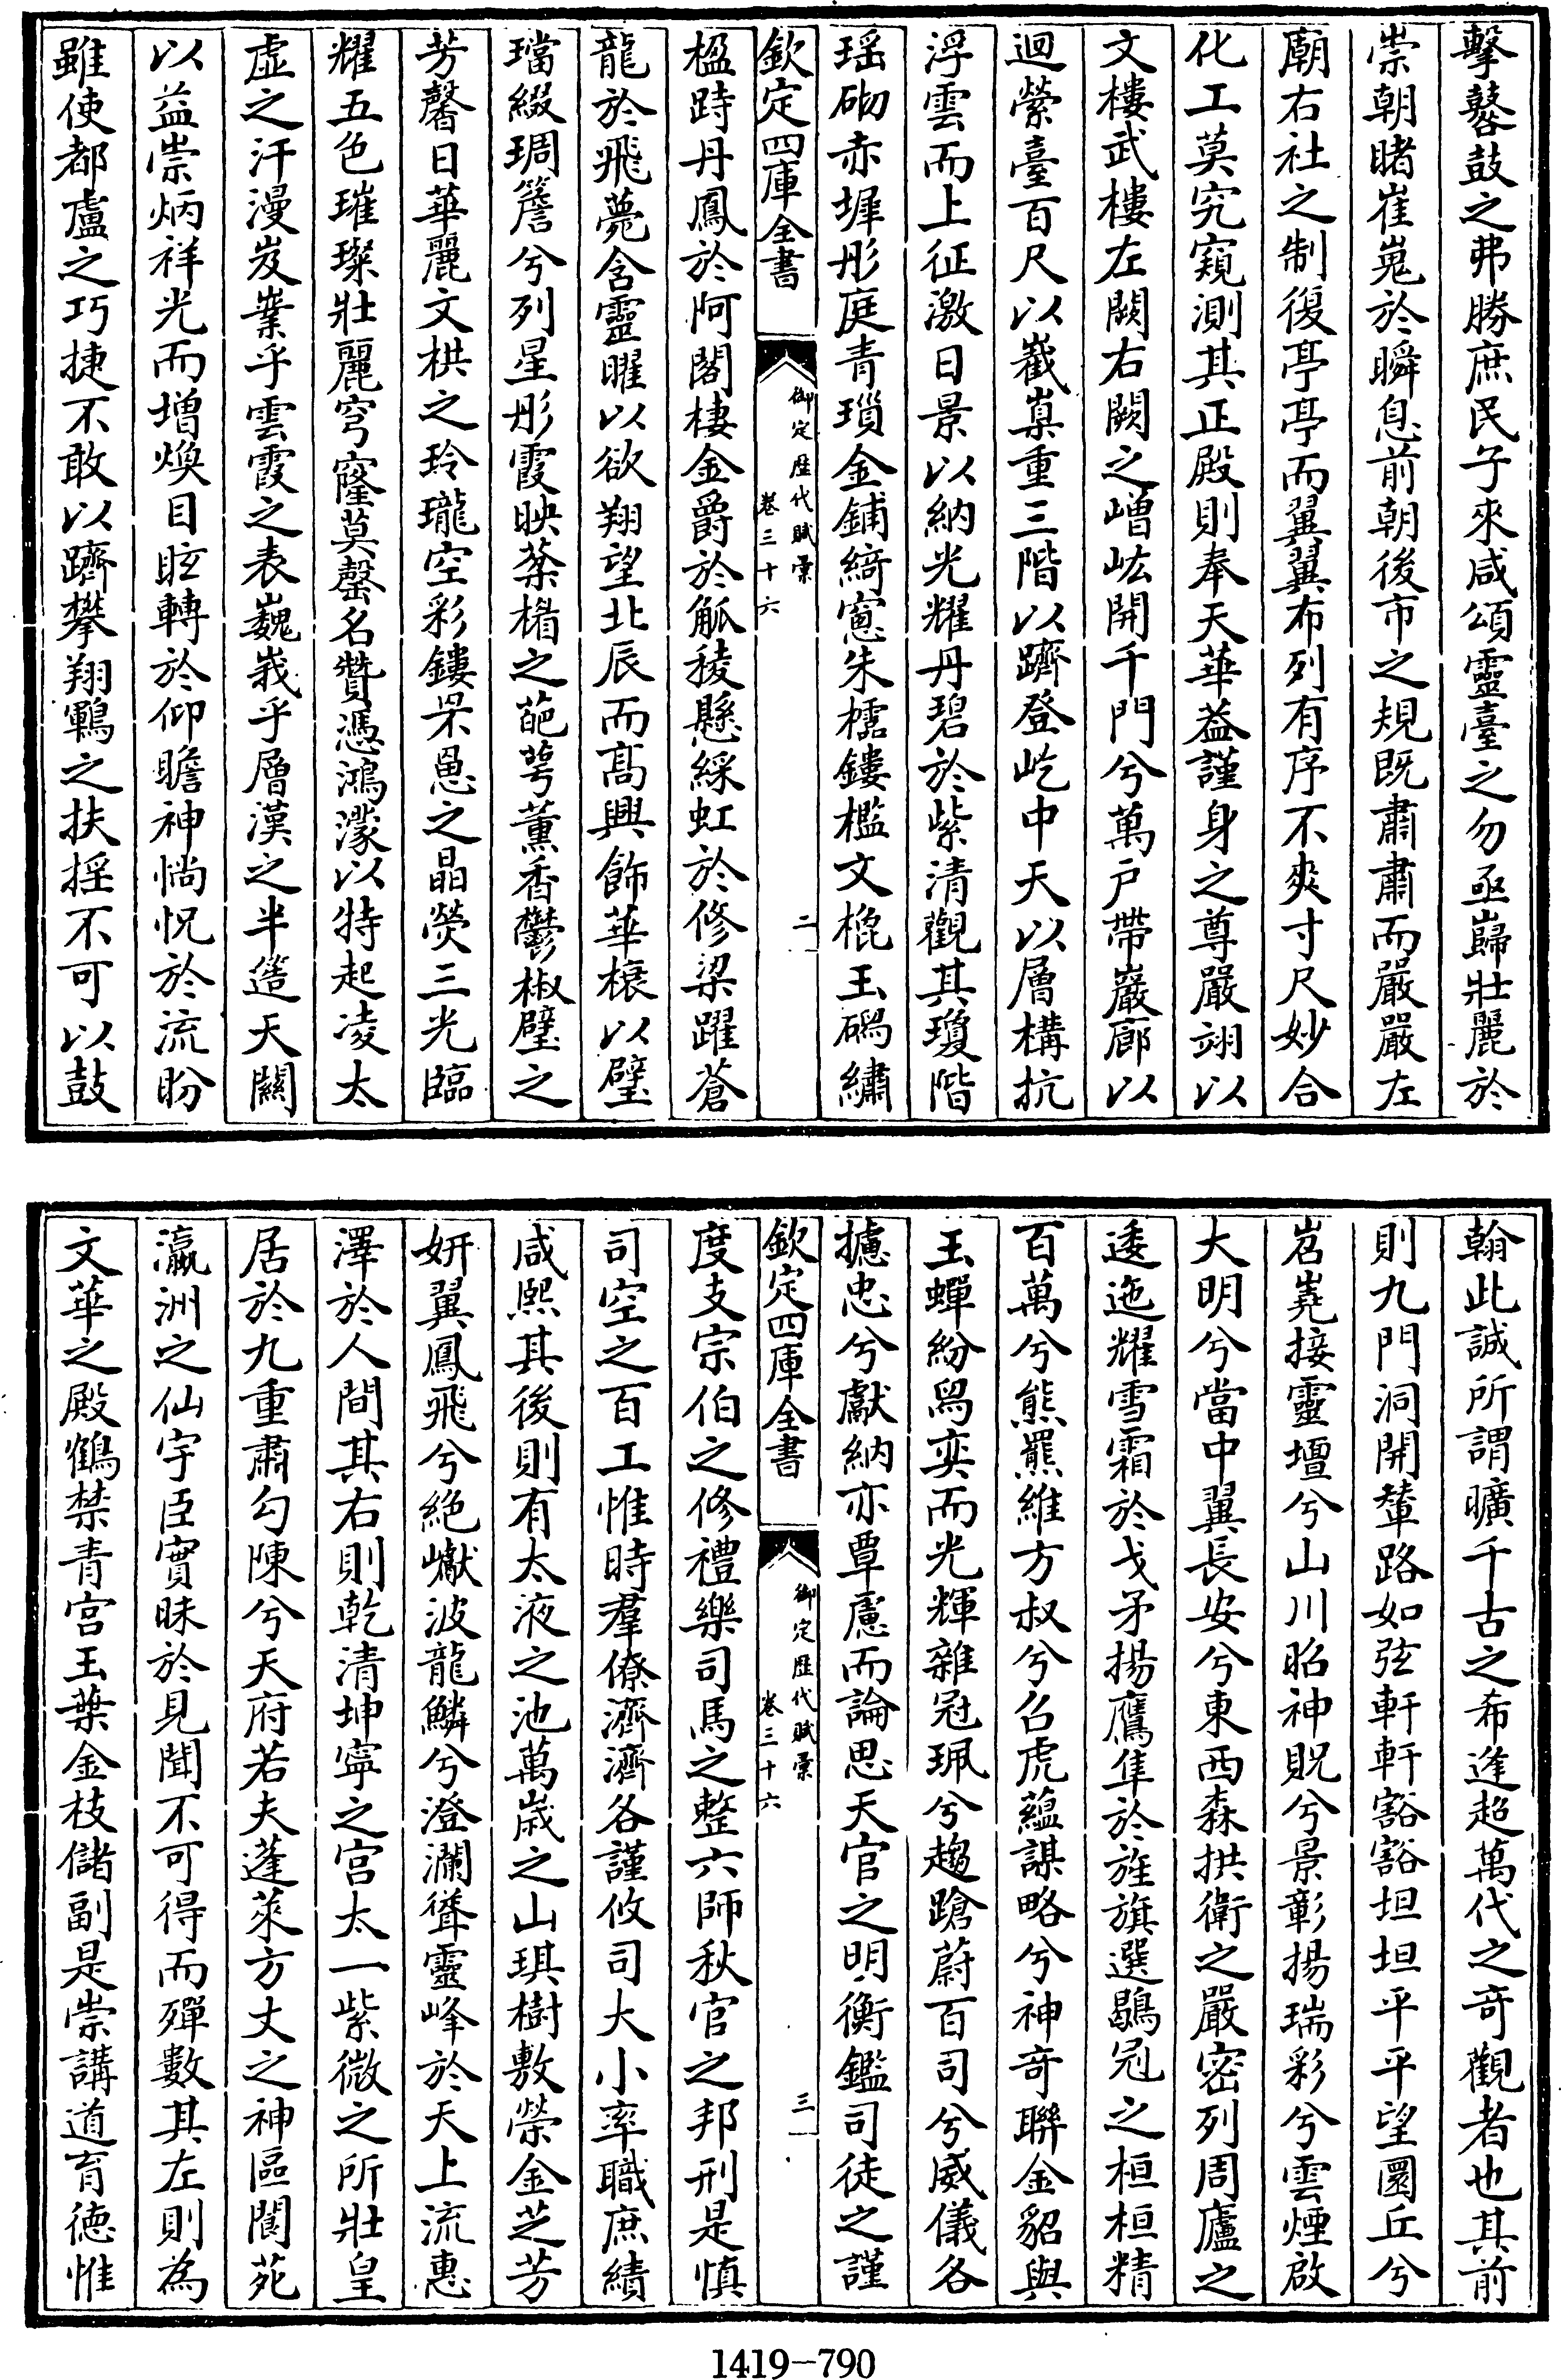 擊鼛鼓之弗勝庶民子來咸頌靈臺之勿亟巋壯麗於
崇朝睹崔嵬於瞬息前朝後市之規既肅肅而嚴嚴左
廟右社之制復亭亭而翼翼布列有序不爽寸尺妙合
化工莫究窺測其正殿則奉天華葢謹身之尊嚴翊以
文樓武樓左闕右闕之嶒岹開千門兮萬戸帶巖廊以
迴縈臺百尺以嶻嶪重三階以躋登屹中天以層構抗
浮雲而上征激日景以納光耀丹碧於紫清觀其瓊階
瑶砌赤墀彤庭青瑣金鋪綺窻朱櫺鏤檻文㮰玉磶繡
欽定四庫全書
御定歴代賦彚
卷三十六
二
楹跱丹鳳於阿閣棲金爵於觚稜懸綵虹於修梁躍蒼
龍於飛甍含靈曜以欲翔望北辰而髙興飾華榱以璧
璫綴琱簷兮列星彤霞映棻橑之葩萼薰香鬱椒壁之
芳馨日華麗文栱之玲瓏空彩鏤罘罳之晶熒三光臨
耀五色璀璨壯麗穹窿莫罄名贊憑鴻濛以特起凌太
虚之汗漫岌嶪乎雲霞之表巍峩乎層漢之半造天闕
以益崇炳祥光而增煥目眩轉於仰瞻神惝怳於流盼
雖使都盧之巧捷不敢以躋攀翔鶤之扶揺不可以鼓
翰此誠所謂曠千古之希逢超萬代之奇觀者也其前
則九門洞開輦路如弦軒軒豁豁坦坦平平望圜丘兮
岧嶤接靈壇兮山川昭神貺兮景彰揚瑞彩兮雲煙啟
大明兮當中翼長安兮東西森拱衛之嚴密列周廬之
逶迤耀雪霜於戈矛揚鷹隼於旌旗選鶡冠之桓桓精
百萬兮熊羆維方叔兮召虎藴謀略兮神奇聯金貂與
玉蟬紛舄奕而光輝雜冠珮兮趨蹌蔚百司兮威儀各
攄忠兮獻納亦覃慮而論思天官之明衡鑑司徒之謹
欽定四庫全書
御定歴代賦彚
卷三十六
三
度支宗伯之修禮樂司馬之整六師秋官之邦刑是慎
司空之百工惟時羣僚濟濟各謹攸司大小率職庶績
咸熙其後則有太液之池萬歳之山琪樹敷榮金芝芳
妍翼鳳飛兮絶巘波龍鱗兮澄瀾聳靈峰於天上流惠
澤於人間其右則乾清坤寧之宫太一紫微之所壯皇
居於九重肅勾陳兮天府若夫蓬萊方丈之神區閬苑
瀛洲之仙宇臣實昧於見聞不可得而殫數其左則為
文華之殿鶴禁青宫玉葉金枝儲副是崇講道育徳惟
1419-790